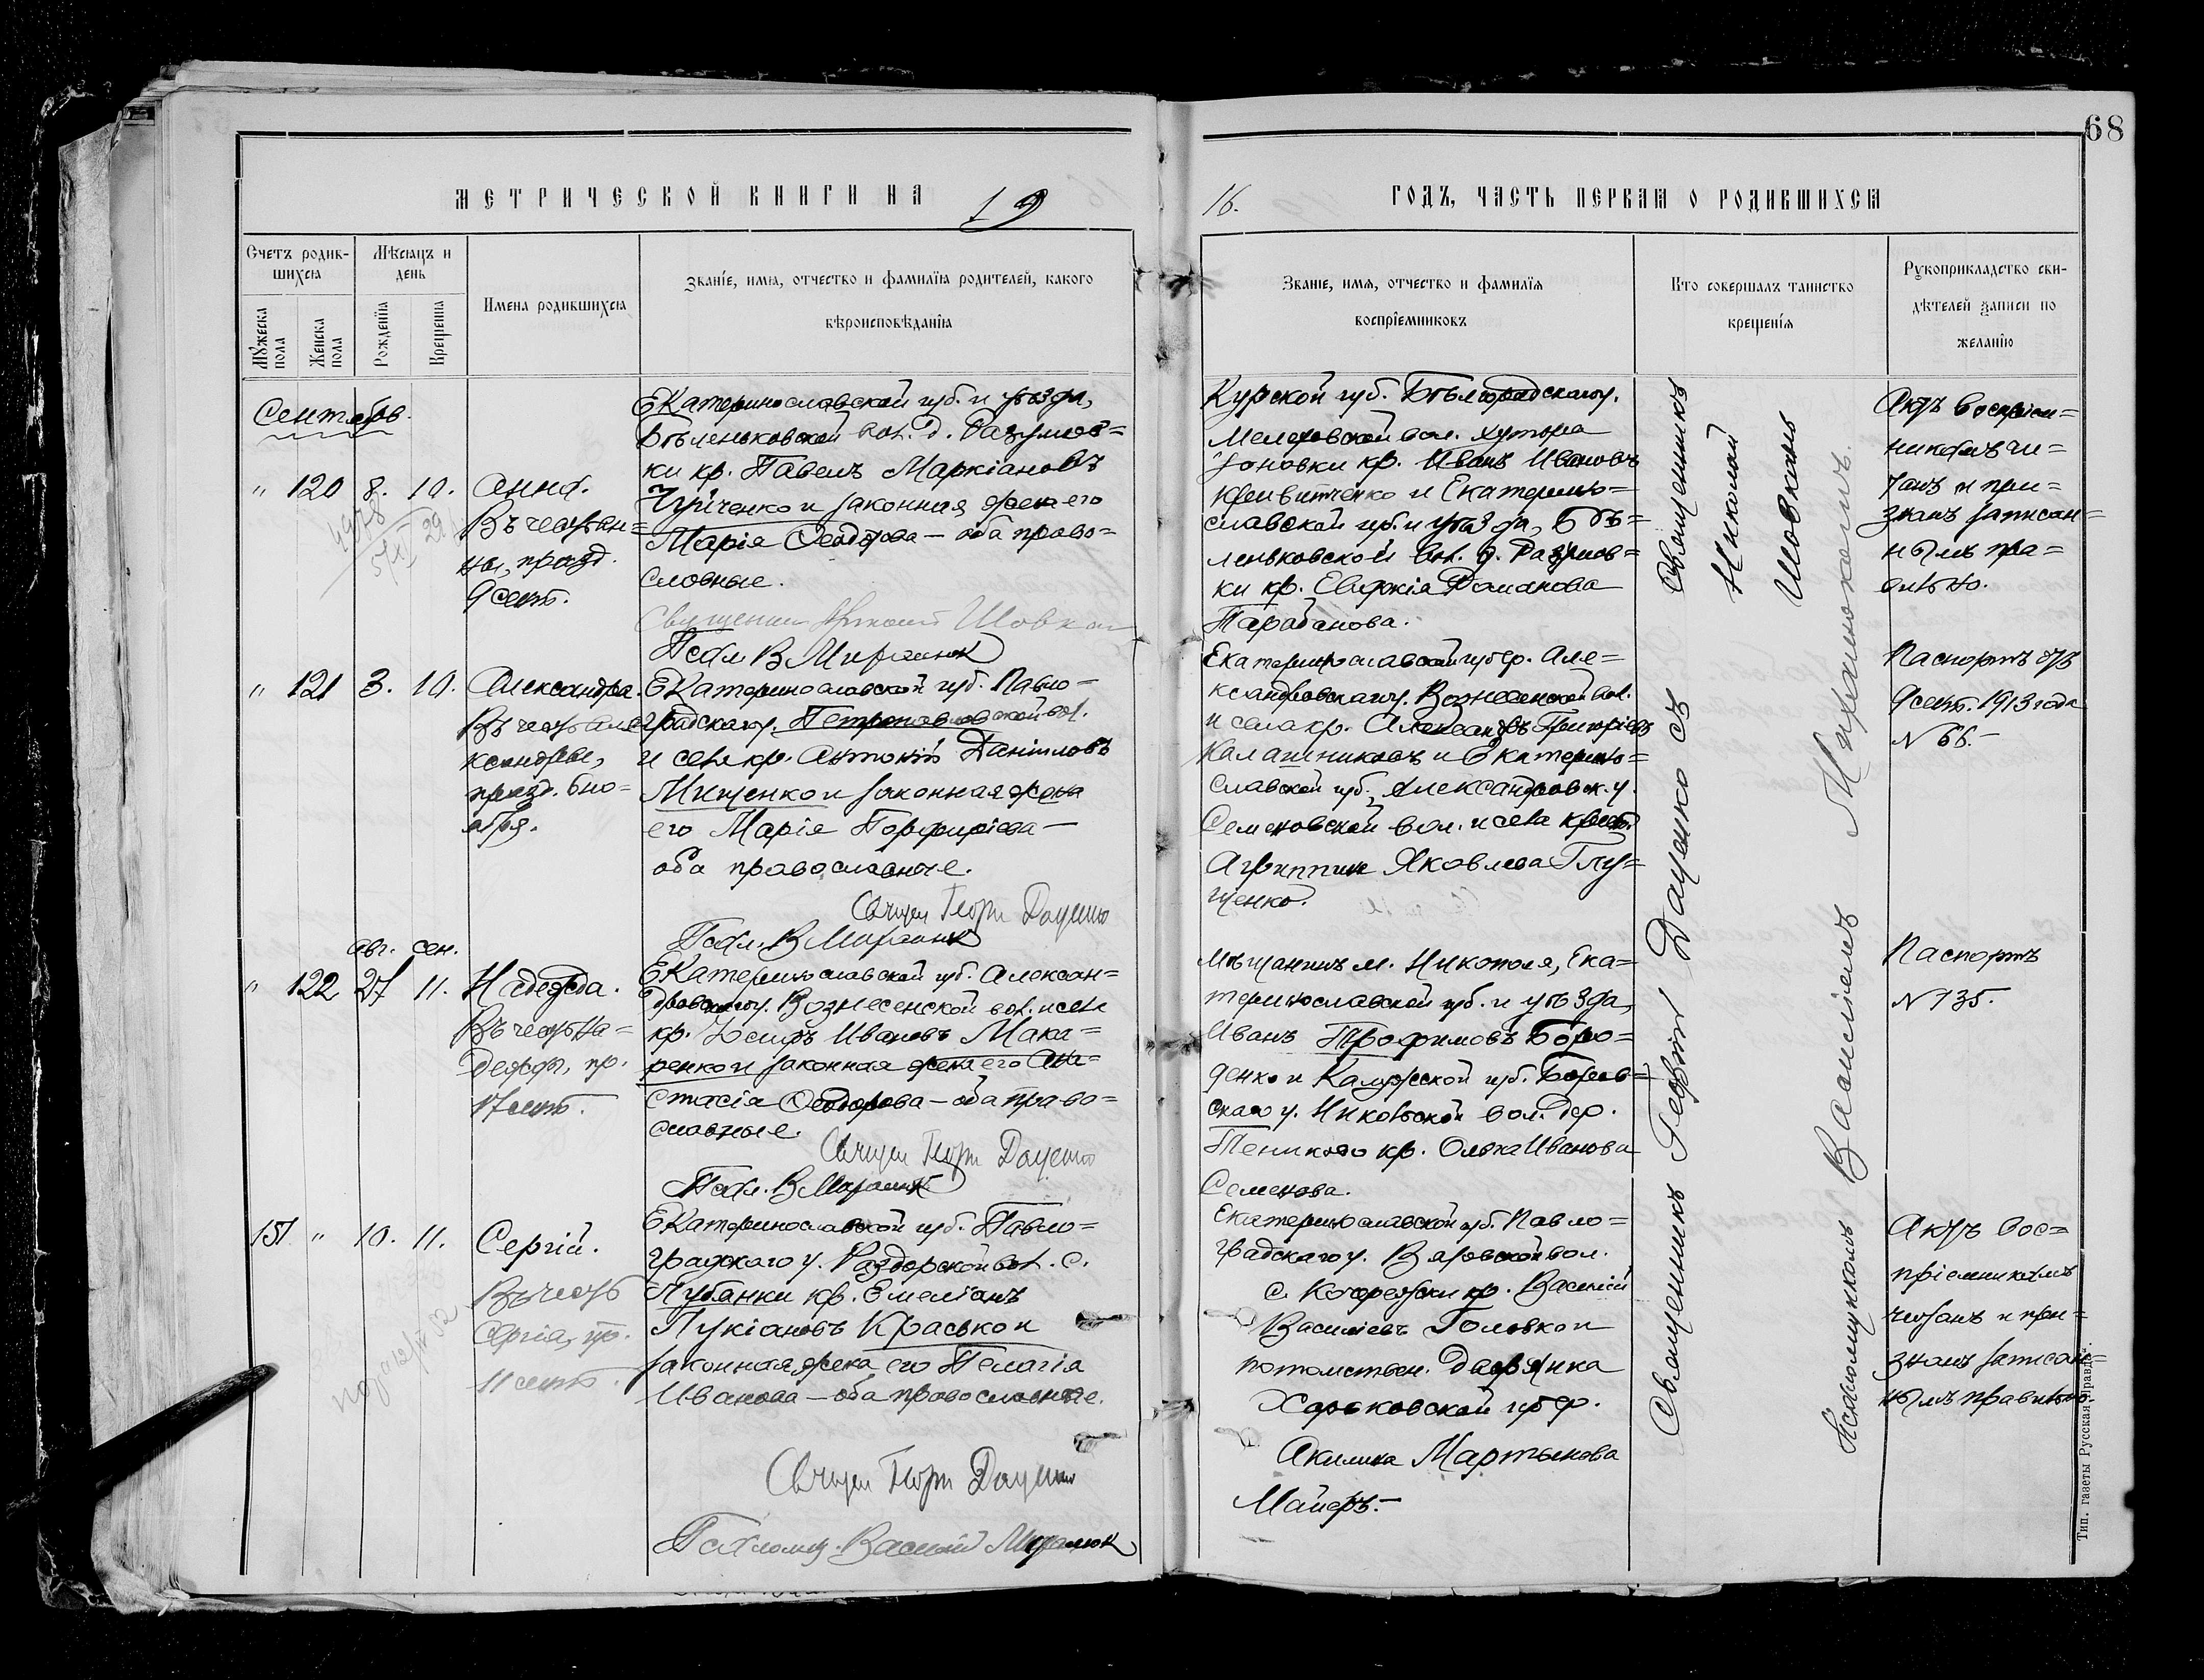 68
МЕТРИЧЕСКОЙ КНИГИ НА 19
16. ГОДЪ, ЧАСТЬ ПЕРВАЯ О РОДИВШИХСЯ
Счетъ родив-
шихся
Мужеска
пола
Женска
пола
Мѣсяцъ и
день
Рожденія
Крещенія
Имена родившихся
Званіе, имя, отчество и фамилія родителей, какого
вѣроисповѣданія
Званіе, имя, отчество и фамилія
воспріемниковъ
Кто совершалъ таинство
крещенія
Рукоприкладство сви-
дѣтелей записи по
желанію
Сентябрь.
" 120 8. 10.
Анна.
Въ честь Ан=
ны, празд.
9 сент.
Екатеринославской губ. и уѣзда,
Бѣленьковской вол. д. Разумов=
ки кр. Павелъ Маркіановъ
и законная жена его
Марія Ѳеодорова — оба право=
славные.
Священник Николай Шовкопл
Псал. В Миралюк
Курской губ. Бѣлгородскаго у.
вол. хутора
кр. Иванъ Ивановъ
и Екатерино=
славской губ. и уѣзда, Бѣ=
леньковской вол. д. Разумов=
ки кр. Евдокія Романова
Тарабанова.
Священникъ
Николай
Актъ воспріем=
никамъ чи=
танъ и при=
знанъ записан=
нымъ пра=
вильно.
" 121 3. 10.
Александра.
Въ честь Але=
ксандры,
празд. 6 но=
ября.
Екатеринославской губ. Павло=
градскаго у. Петропавловской вол.
и села кр. Антоній Даніиловъ
Мищенко и законная жена
его Марія Порфиріева —
оба православные.
Свящ Георг Даценко
Псал. В Миралюк
Екатеринославской губер. Але=
ксандровскаго у. Вознесенской вол.
и села кр. Александръ Григоріевъ
Калашниковъ и Екатерино=
славской губ., Александровск. у.
Семеновской вол. и села крест.
Агриппина Яковлева Глу=
щенко.
Паспортъ отъ
9 сент. 1913 года
N 66. —
авг. сен.
" 122 27 11.
Надежда.
Въ честь На=
дежды, пр.
17 сент.
Екатеринославской губ. Алексан=
дровскаго у. Вознесенской вол. и села
кр. Іосифъ Ивановъ Мака=
ренко и законная жена его Ана=
стасія Ѳеодорова — оба право=
славные.
Свящ Георг Даценко
Псал. В Миралюк
Мѣщанинъ м. Никополя, Ека=
теринославской губ. и уѣзда,
Иванъ Трофимовъ Боро=
денко и Калужской губ. Боров=
скаго у. вол. дер.
кр. Ольга Иванова
Семенова.
Паспортъ
N 135.
151 " 10. 11.
Сергій.
Въ честь
Сергія, пр.
11 сент.
Екатеринославской губ. Павло=
градскаго у. Раздорской вол. с.
Лубянки кр. Емеліанъ
Лукіановъ Красько и
законная жена его Пелагія
Иванова — оба православные.
Свящ Георг Даценко
Псаломщ. Василій Миралюк
Екатеринославской губ. Павло=
градскаго у. вол.
с. кр. Василій
Василіевъ Головко и
потомствен. дворянка
Харьковской губер.
Акилина Мартынова
Майеръ. —
Священникъ Георгій Даценко съ
Псаломщикомъ Василіемъ Миралюкомъ.
Актъ вос=
пріемникамъ
читанъ и при=
знанъ записан=
нымъ правильно.
Тип. газеты Русская Правда.